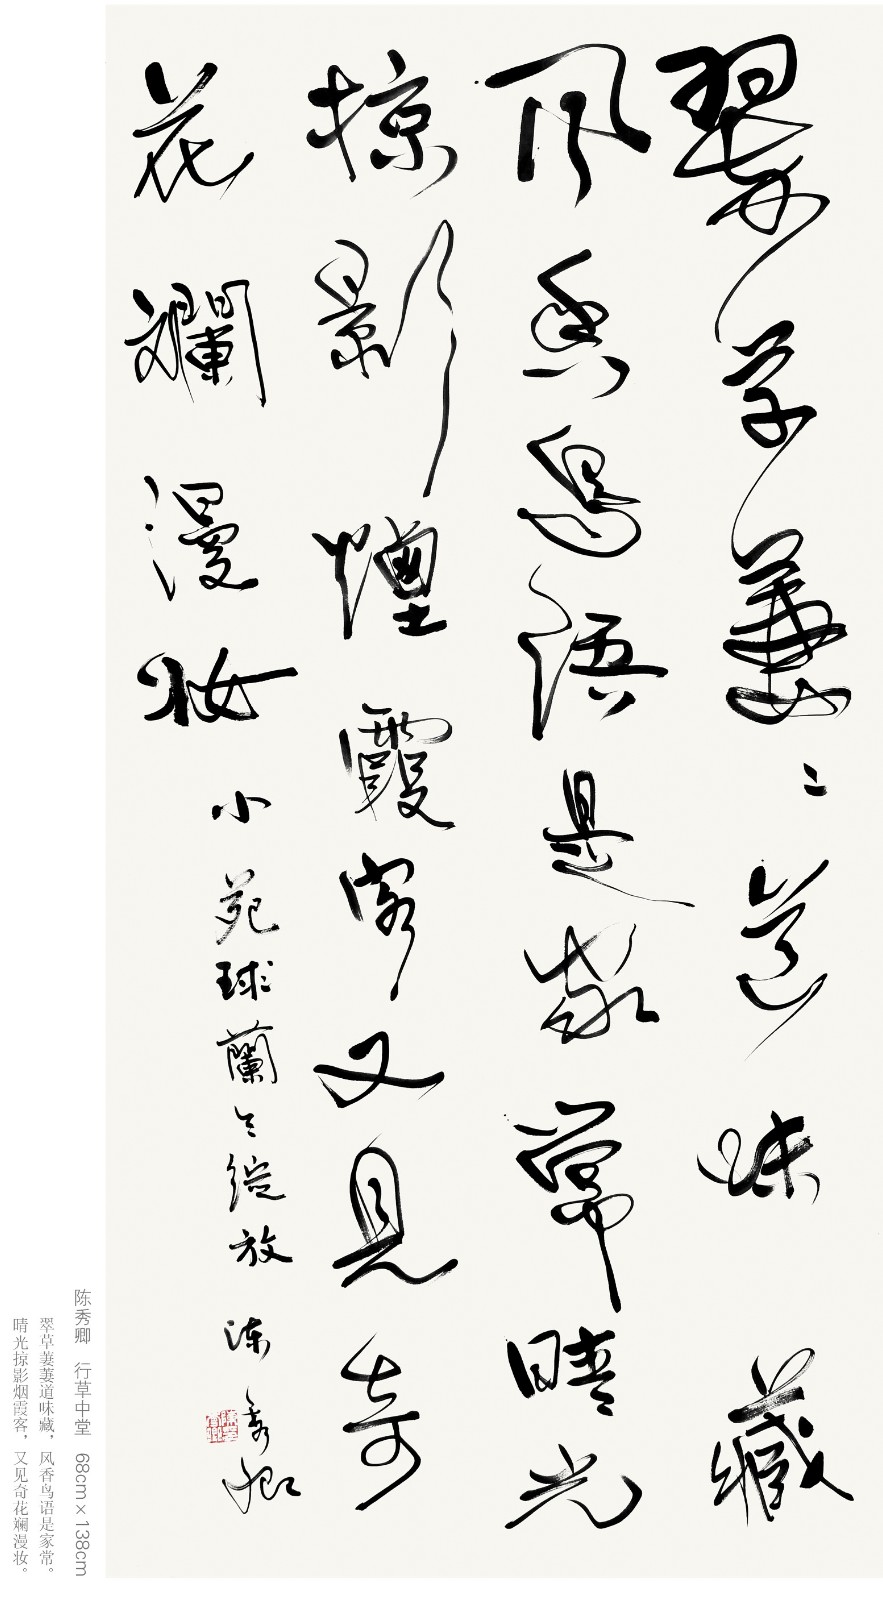 翠草萋〻道味藏
风香鸟语是家常晴光
掠影烟霞客又见奇
花斓漫妆
小苑球蘭〻绽放
陈秀卿
陈秀卿 行草中堂 68cm×138cm
翠草萋萋道味藏，风香鸟语是家常。
晴光掠影烟霞客，又见奇花斓漫妆。